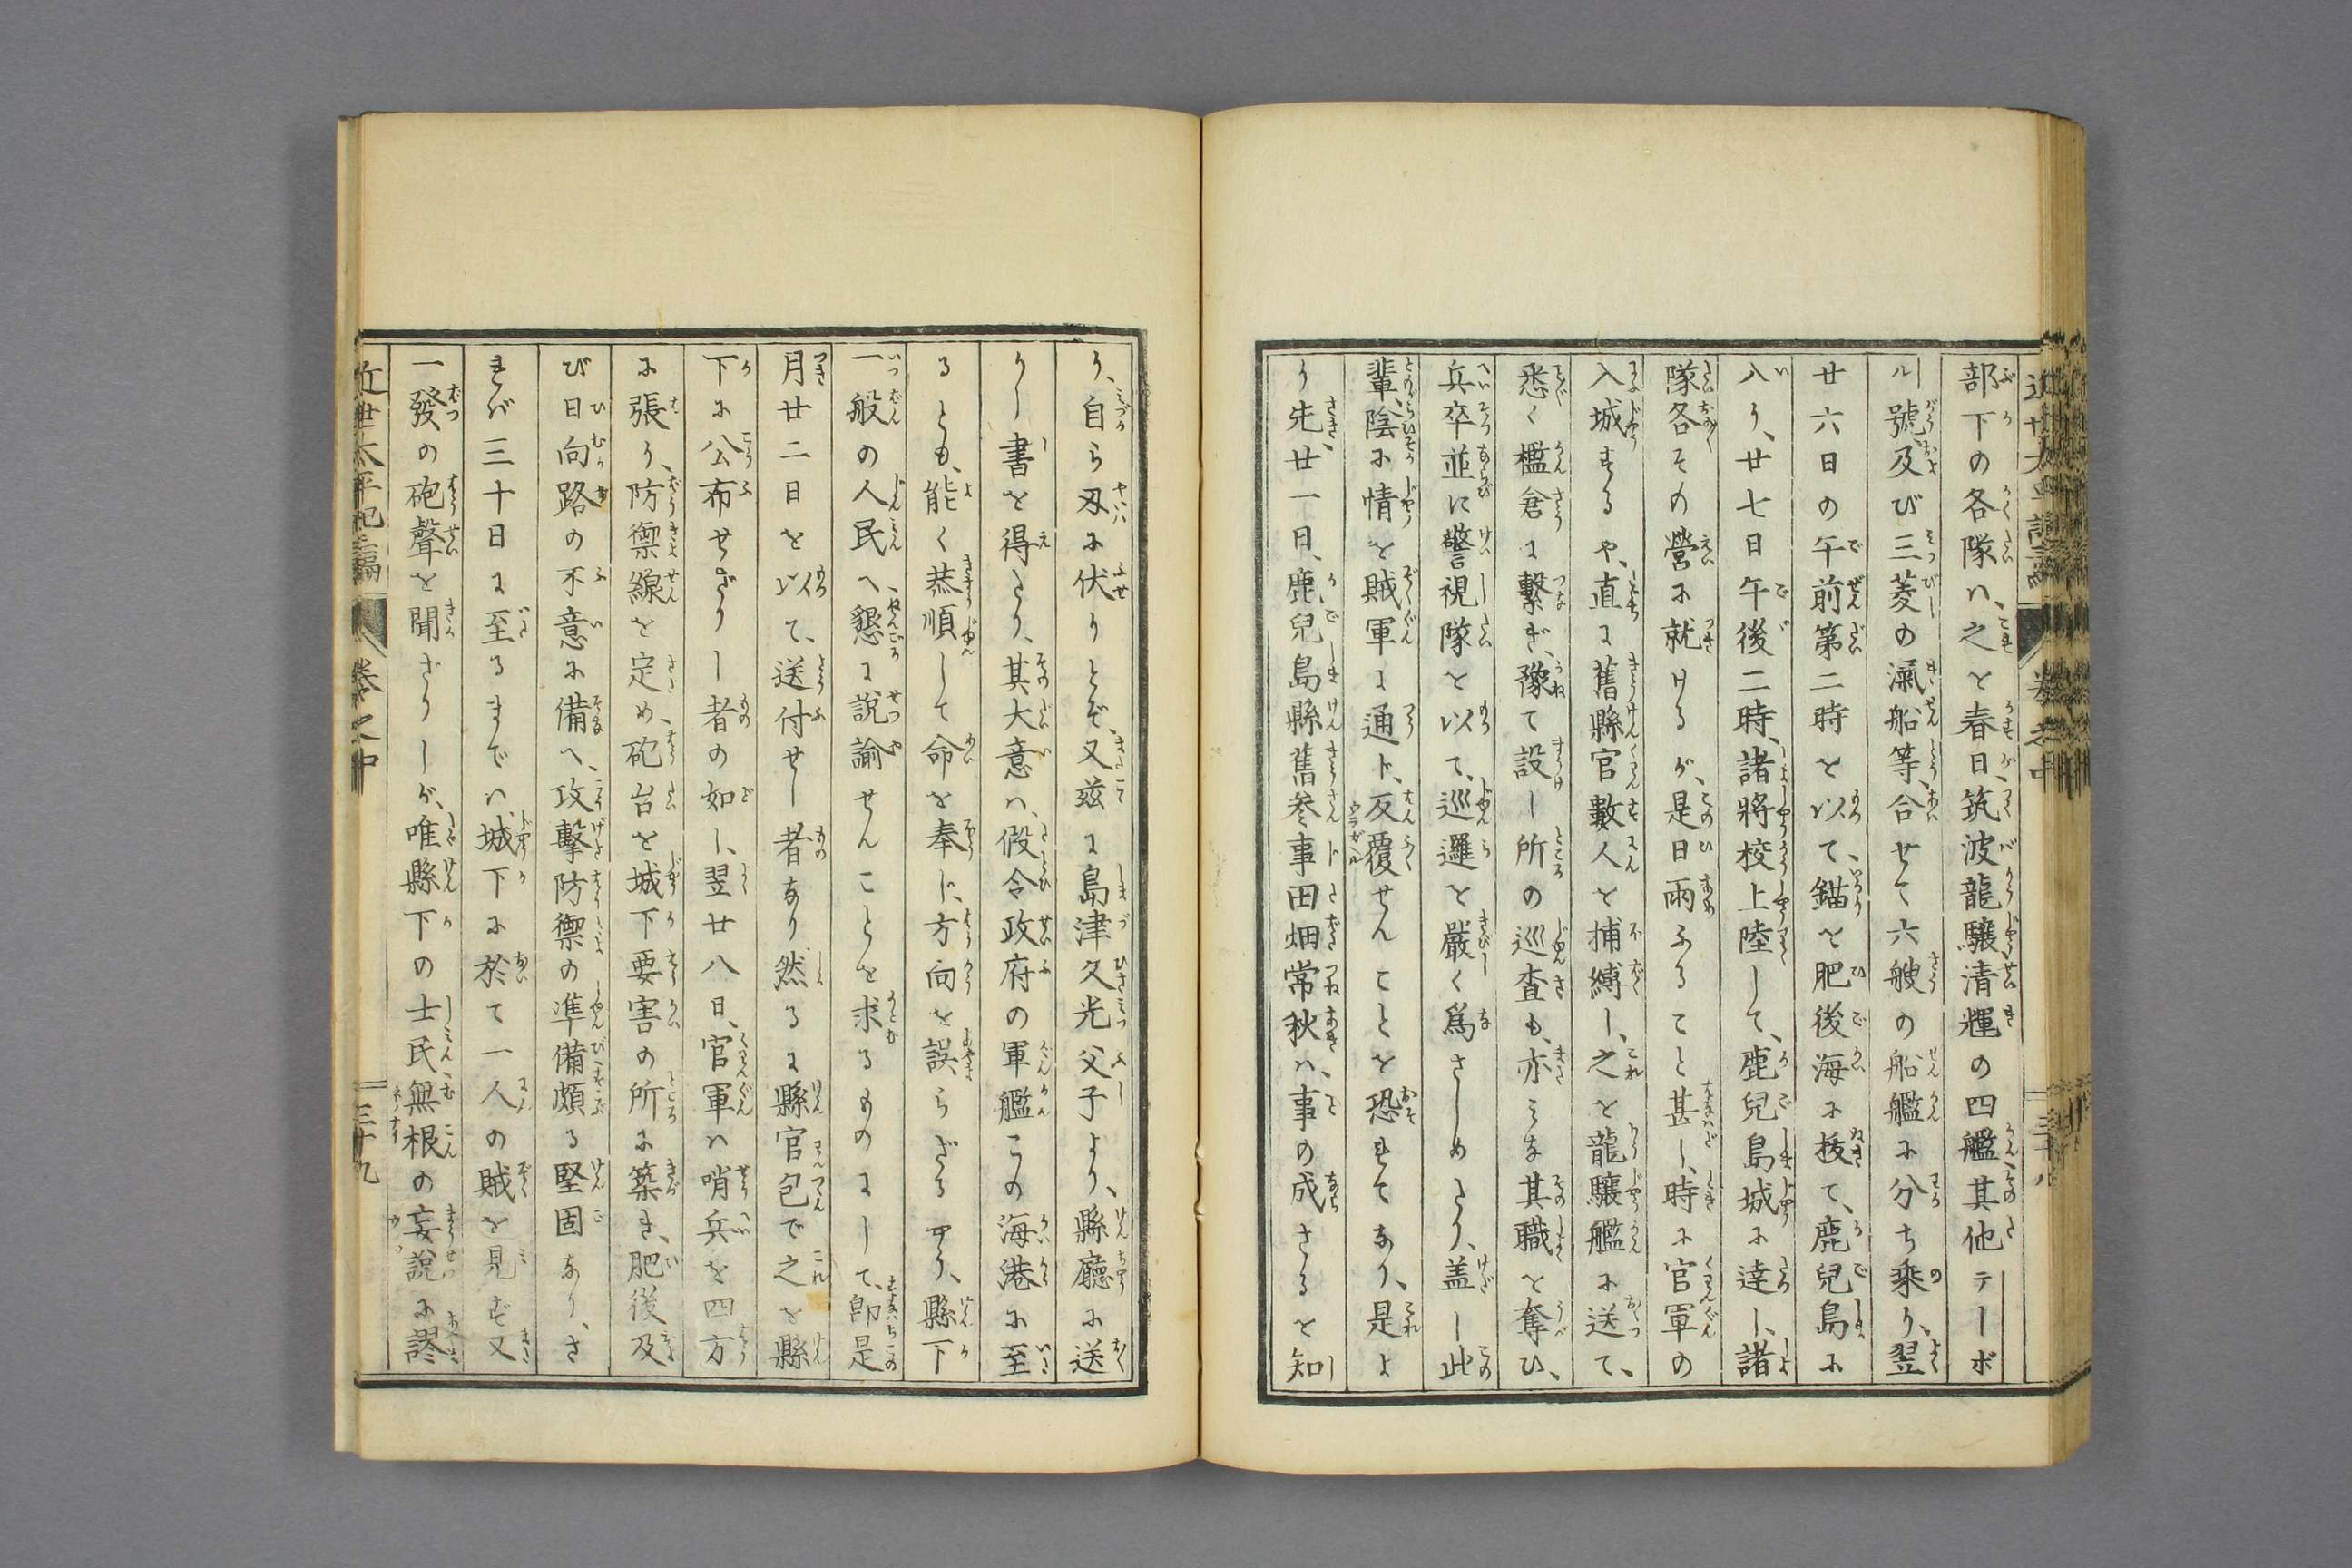 部下の各隊ハ、之を春日、筑波、龍驤、清輝の四艦、其他テーボ
ル號、及び三菱の滊船等、合せて六艘の船艦に分ち乘り、翌
廿六日の午前第二時を以て、錨を肥後海に拔て、鹿兒島に
入り、廿七日午後二時、諸將校上陸して、鹿兒島城に達し、諸
隊各その營に就けるが、是日雨ふること甚し、時に官軍の
入城するや、直に舊縣官數人を捕縛し、之を龍驤艦に送て、
悉く檻倉に繫ぎ、豫て設し所の巡査も、亦みな其職を奪ひ、
兵卒並に警視隊を以て、巡邏を嚴く爲さしめたり、盖し此
輩、陰に情を賊軍に通ド、反覆せんことを恐れてあり、是よ
り先、廿一日、鹿兒島縣舊參事田畑常秋ハ、事の成ざるを知
り、自ら刄に伏りとぞ、又茲に島津久光父子より、縣廳に送
りし書を得たり、其大意ハ、假令政府の軍艦この海港に至
るとも、能く恭順して命を奉じ、方向を誤らざるやう、縣下
一般の人民へ、懇に說諭せんことを求るものにして、卽是
月廿二日を以て、送付せし者あり、然るに縣官包で之を縣
下に公布せざりし者の如し、翌廿八日、官軍ハ哨兵を四方
に張り、防禦線を定め、砲台を城下要害の所に築き、肥後及
び日向路の不意に備へ、攻擊防禦の準備頗る堅固あり、さ
れバ三十日に至るまでハ、城下に於て一人の賊を見ず、又
一發の砲聲を聞ざりしが、唯縣下の士民、無根の妄說に謬
近世太平記二編 卷之中 三十九